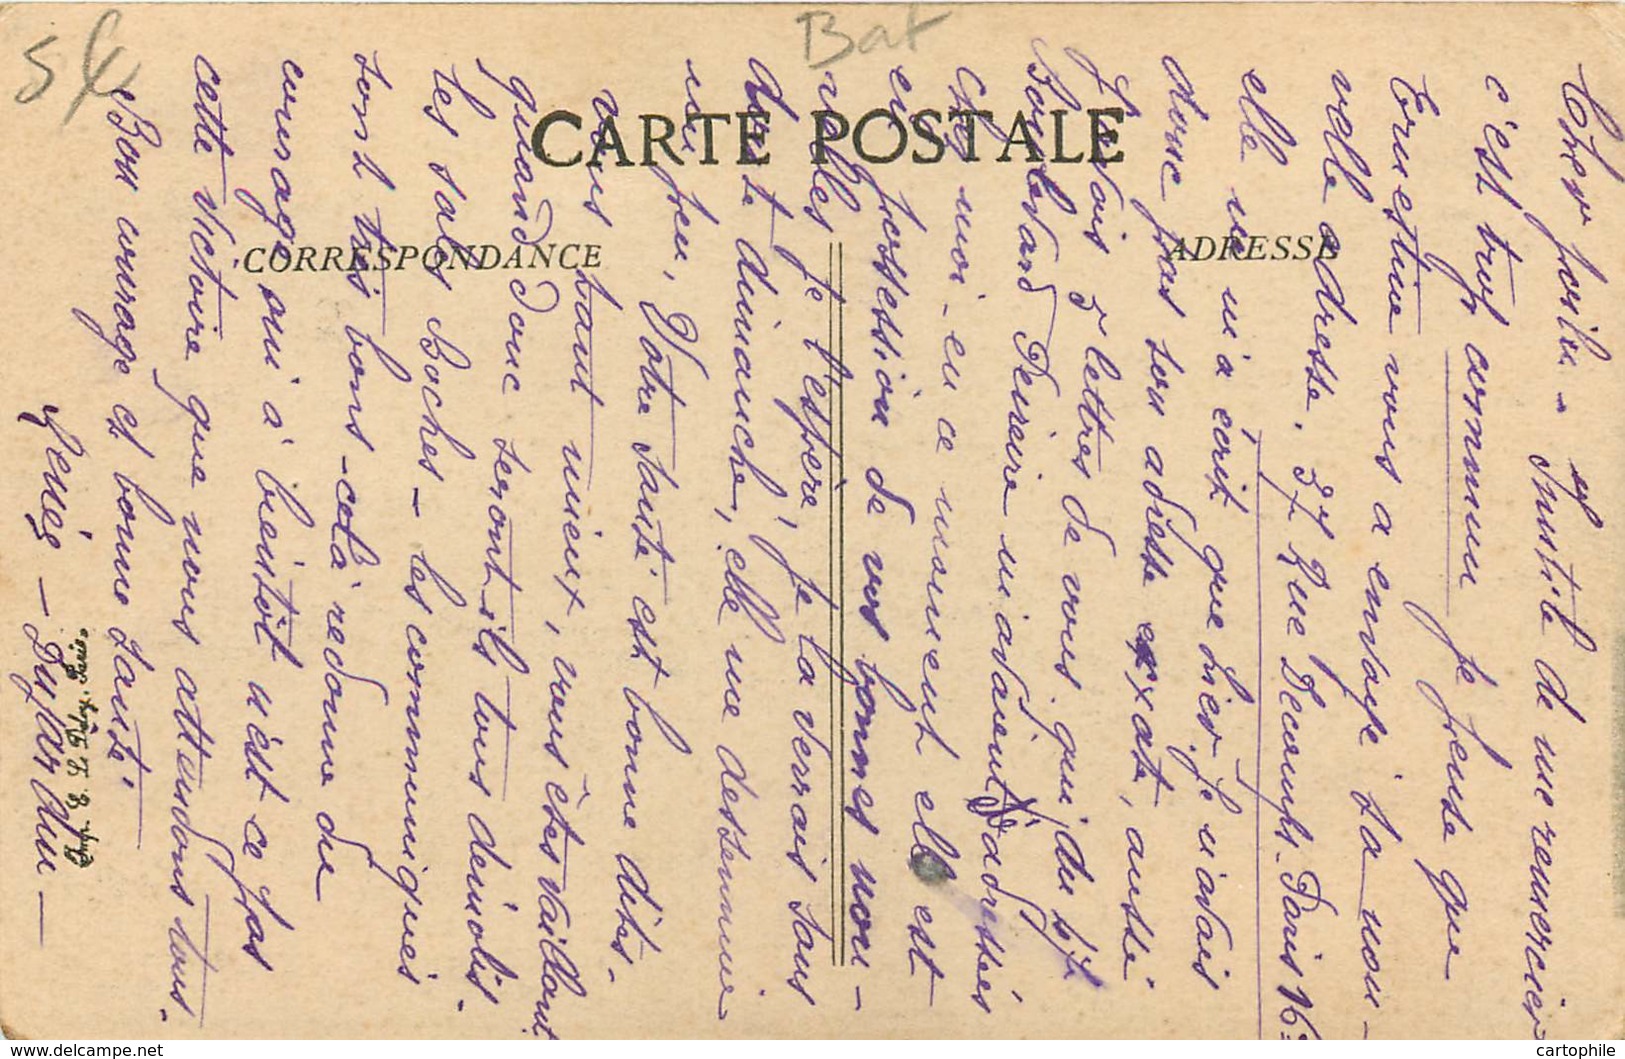 54
Bat
CARTE POSTALE
CORRESPONDANCE
ADRESSE
Cher poilu - Inutile de me remercier
c'est trop commun je pense que
Ernestine vous a envoyé sa nou-
velle adresse. 37 Rue Decamps. Paris 16e
elle ne m'a écrit que hier. je n'avais
donc pas son adresse exxate, aussi
j'avais 3 lettres de vous qui
Boulevard Pereire m'avaient adressés
chez moi - en ce moment elle est
en possession de vos bonnes nou-
velles je l'espère, je la verrais sans
doute dimanche, elle me dessennuie
un peu, Votre santé est bonne dites-
vous tant mieux, vous êtes vaillant
quand donc seront-ils tous démolis
les sales Boches - les communiqués
sont très bons - cela redonne du
courage oui à bientôt n'est ce pas
cette victoire que nous attendons tous.
Bon courage et bonne santé
Dujardin -